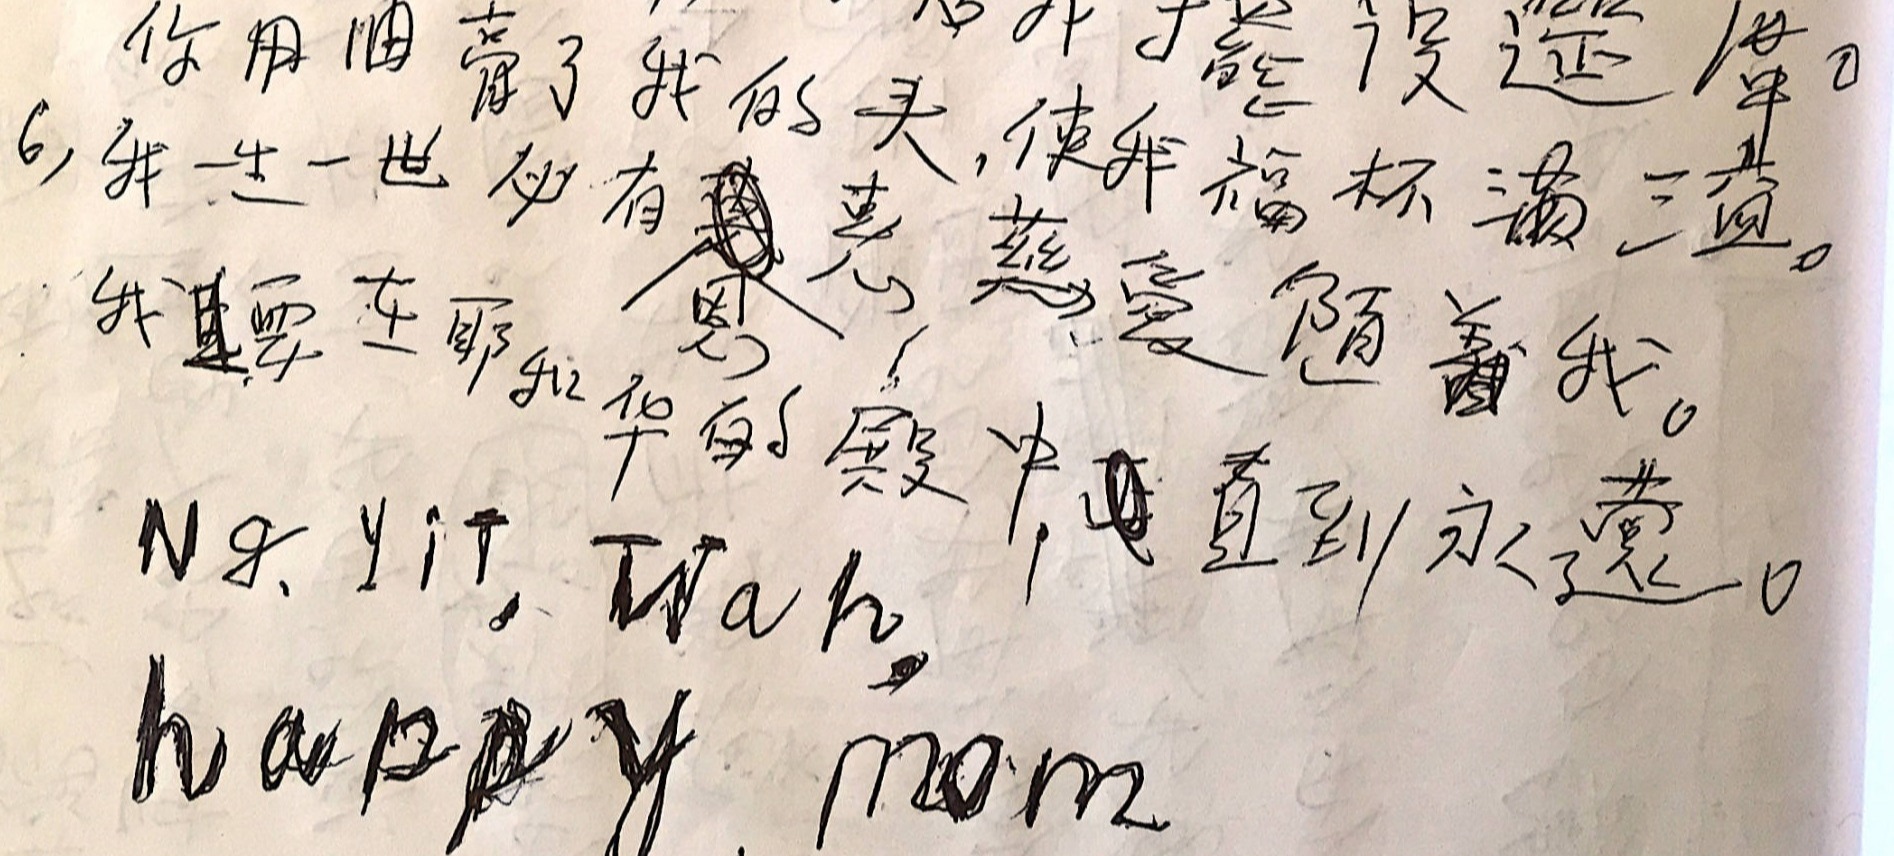 设筵席。
你用油膏了我的头,使我福杯满溢。
6, 我一生一世必有恩惠慈爱随着我。
我且要在耶和华的殿中,直到永远。
Ng. Yit. Wah.
happy mom